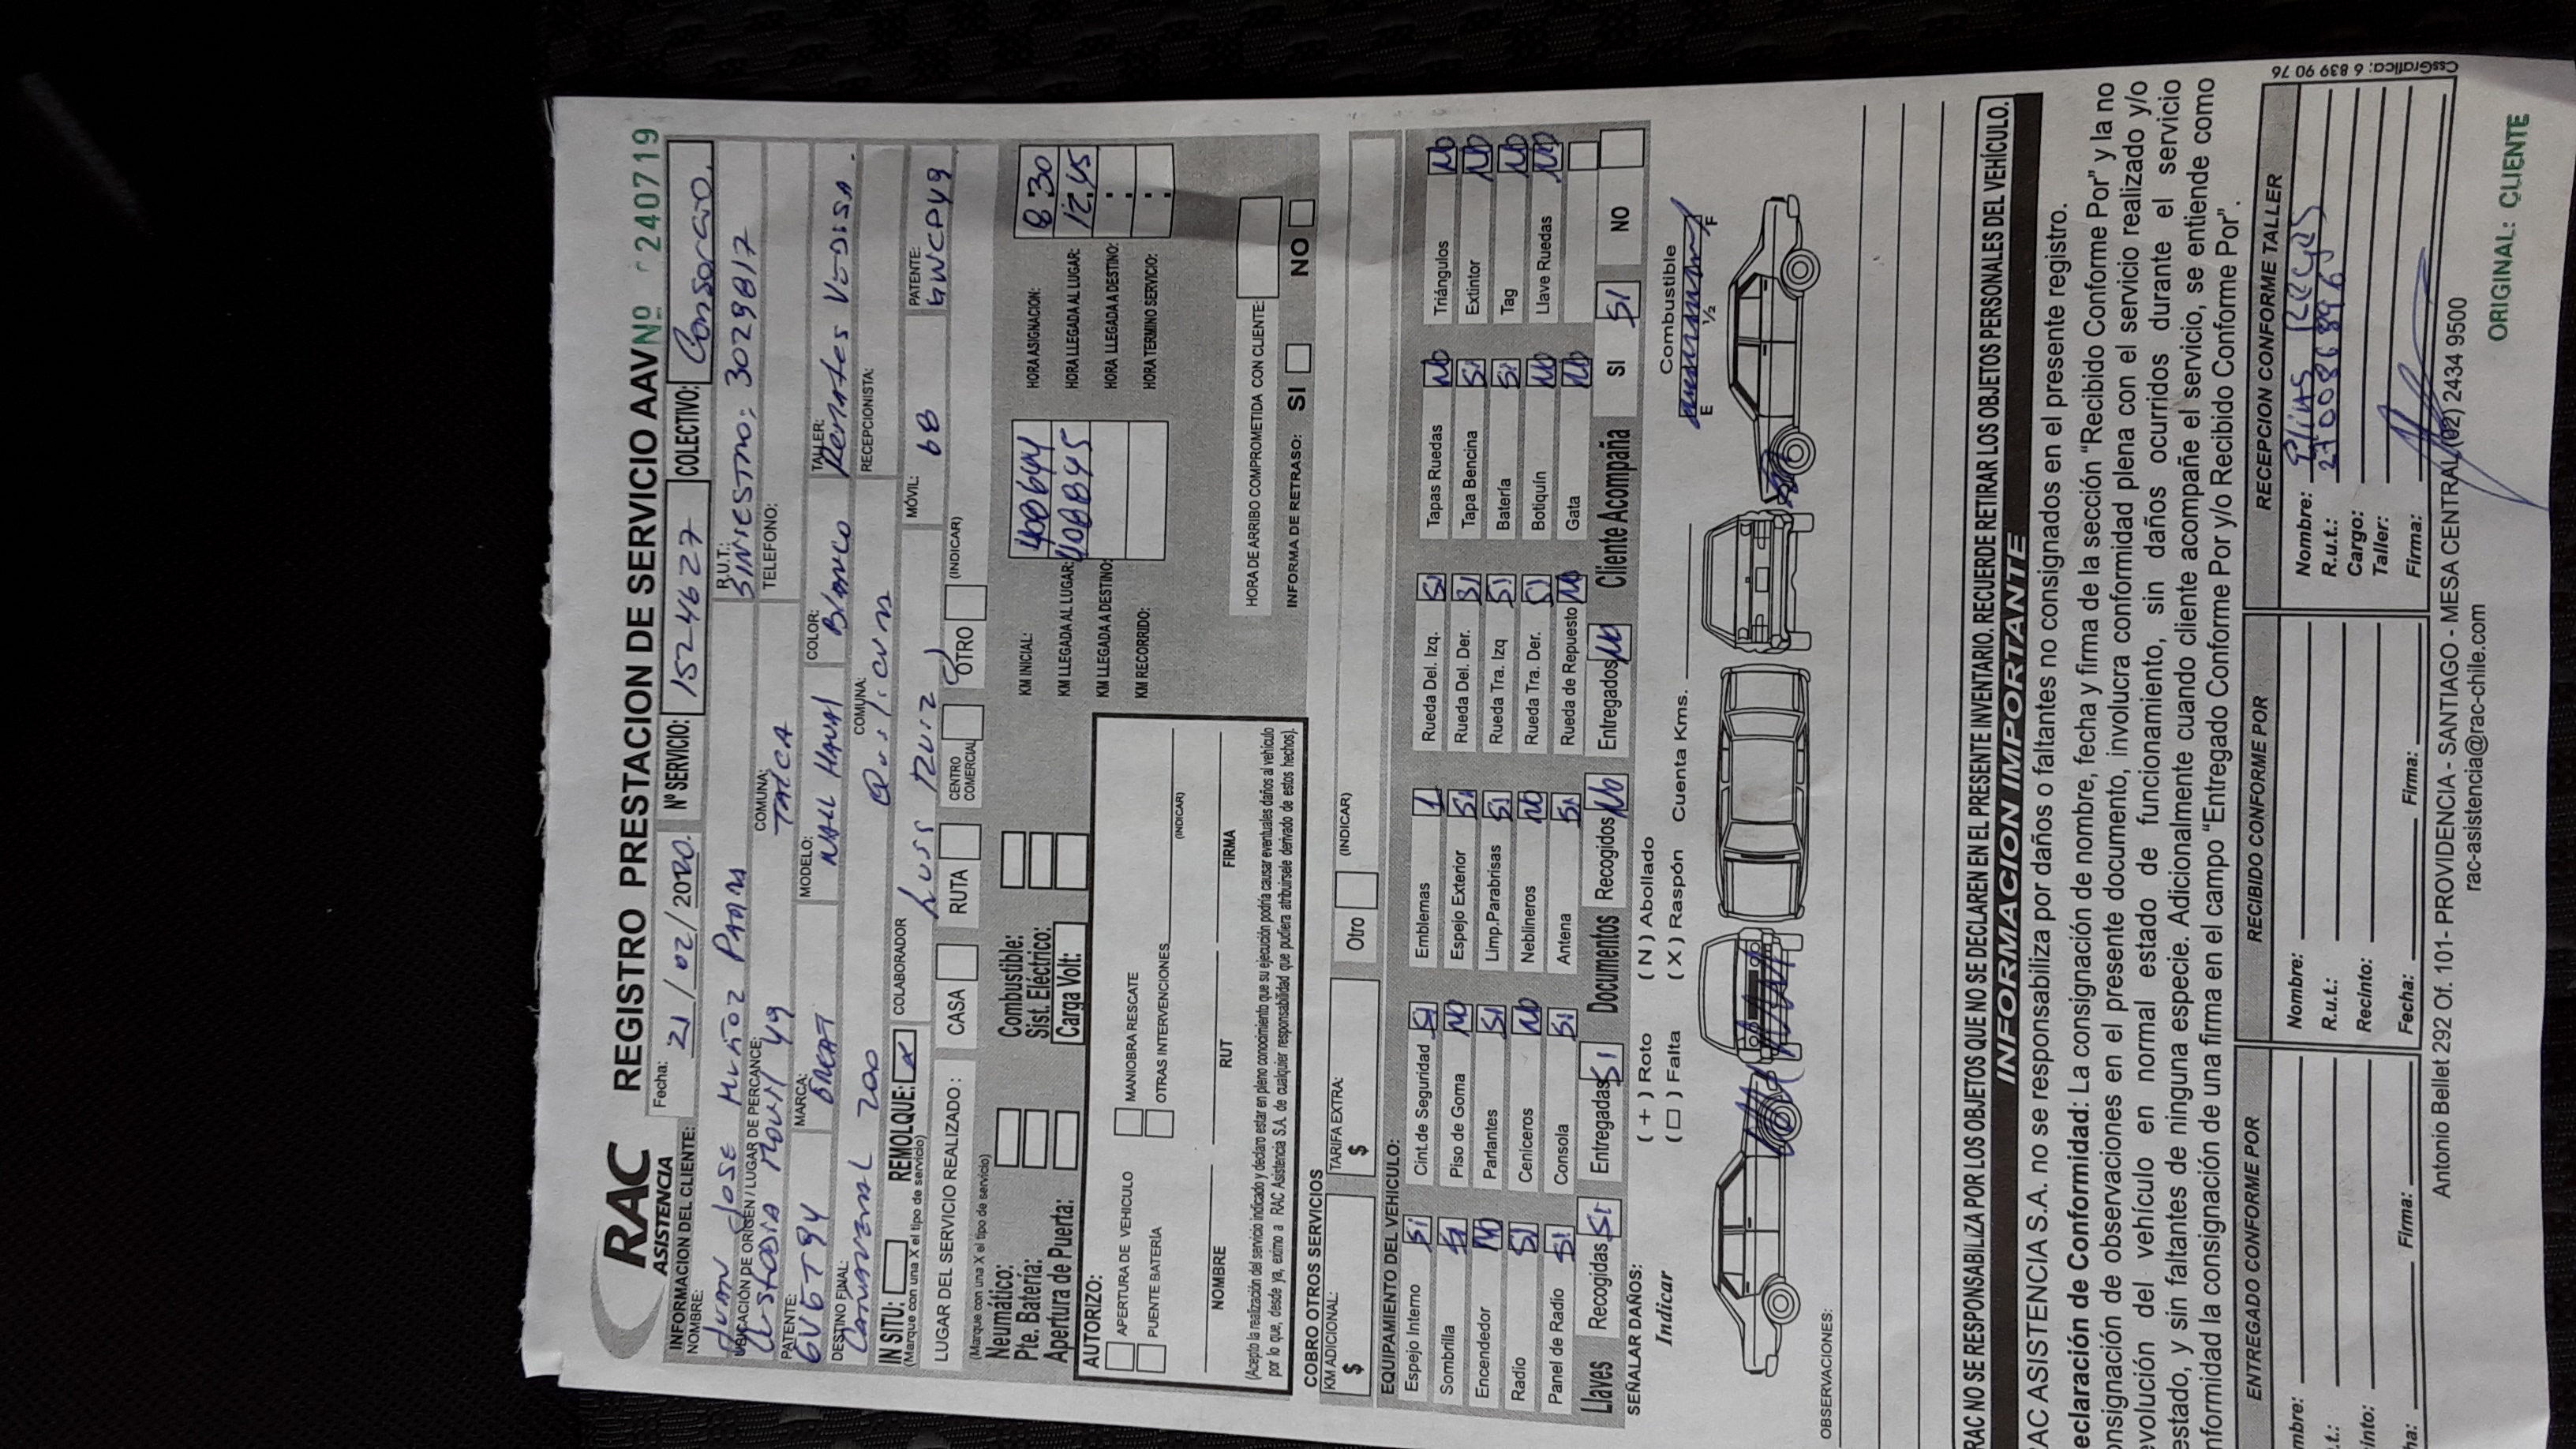 RAC
ASISTENCIA
REGISTRO PRESTACION DE SERVICIO AAV Nº 240719
Fecha: 21/02/2020. Nº SERVICIO: 15246627 COLECTIVO: Consorcio.
INFORMACION DEL CLIENTE:
NOMBRE: Juan Jose Muñoz Parra R.U.T.: SINIESTRO: 3029817
UBICACIÓN DE ORIGEN / LUGAR DE PERCANCE: Custodia Movil 49 COMUNA: TALCA TELEFONO:
PATENTE: GVET94 MARCA: GREAT MODELO: WALL HAVAL COLOR: Blanco TALLER: Remates Vedisa.
DESTINO FINAL: 700 COMUNA: Quilicura RECEPCIONISTA:
IN SITU: REMOLQUE: X COLABORADOR Luis Ruiz MÓVIL: 68 PATENTE: GWCP49
(Marque con una X el tipo de servicio)
LUGAR DEL SERVICIO REALIZADO: CASA RUTA CENTRO COMERCIAL OTRO (INDICAR)
(Marque con una X el tipo de servicio)
Neumático: Combustible:
Pte. Batería: Sist. Eléctrico:
Apertura de Puerta: Carga Volt:
KM INICIAL: 400644 HORA ASIGNACION: 8:30
KM LLEGADA AL LUGAR: 400845 HORA LLEGADA AL LUGAR: 12:45
KM LLEGADA A DESTINO: HORA LLEGADA A DESTINO: :
KM RECORRIDO: HORA TERMINO SERVICIO: :
AUTORIZO:
APERTURA DE VEHICULO MANIOBRA RESCATE
PUENTE BATERÍA OTRAS INTERVENCIONES (INDICAR)
NOMBRE RUT FIRMA
(Acepto la realización del servicio indicado y declaro estar en pleno conocimiento que su ejecución podría causar eventuales daños al vehículo
por lo que, desde ya, eximo a RAC Asistencia S.A. de cualquier responsabilidad que pudiera atribuírsele derivado de estos hechos).
HORA DE ARRIBO COMPROMETIDA CON CLIENTE:
INFORMA DE RETRASO: SI NO
COBRO OTROS SERVICIOS
KM ADICIONAL: $ TARIFA EXTRA: $ Otro (INDICAR)
EQUIPAMIENTO DEL VEHICULO:
Espejo Interno Si Cint.de Seguridad SI Emblemas 1 Rueda Del. Izq. SI Tapas Ruedas NO Triángulos NO
Sombrilla SI Piso de Goma NO Espejo Exterior SI Rueda Del. Der. SI Tapa Bencina SI Extintor NO
Encendedor NO Parlantes SI Limp.Parabrisas SI Rueda Tra. Izq SI Batería SI Tag NO
Radio SI Ceniceros NO Neblineros NO Rueda Tra. Der. SI Botiquín NO Llave Ruedas NO
Panel de Radio SI Consola SI Antena SI Rueda de Repuesto NO Gata NO
Llaves Recogidas Si Entregadas SI Documentos Recogidos No Entregados No Cliente Acompaña SI SI NO
SEÑALAR DAÑOS:
Indicar
( + ) Roto ( N ) Abollado
( □ ) Falta ( X ) Raspón Cuenta Kms.
Combustible
E ½ F
OBSERVACIONES:
RAC NO SE RESPONSABILIZA POR LOS OBJETOS QUE NO SE DECLAREN EN EL PRESENTE INVENTARIO. RECUERDE RETIRAR LOS OBJETOS PERSONALES DEL VEHÍCULO.
INFORMACION IMPORTANTE
RAC ASISTENCIA S.A. no se responsabiliza por daños o faltantes no consignados en el presente registro.
eclaración de Conformidad: La consignación de nombre, fecha y firma de la sección "Recibido Conforme Por" y la no
onsignación de observaciones en el presente documento, involucra conformidad plena con el servicio realizado y/o
evolución del vehículo en normal estado de funcionamiento, sin daños ocurridos durante el servicio
estado, y sin faltantes de ninguna especie. Adicionalmente cuando cliente acompañe el servicio, se entiende como
nformidad la consignación de una firma en el campo "Entregado Conforme Por y/o Recibido Conforme Por".
ENTREGADO CONFORME POR RECIBIDO CONFORME POR RECEPCION CONFORME TALLER
mbre: Nombre: Nombre: Elias Reyes
.t.: R.u.t.: R.u.t.:
into: Recinto: Cargo:
Taller:
ha: Firma: Fecha: Firma: Firma:
Antonio Bellet 292 Of. 101- PROVIDENCIA - SANTIAGO - MESA CENTRAL (02) 2434 9500
rac-asistencia@rac-chile.com
ORIGINAL: CLIENTE
CssGrafica: 6 839 90 76